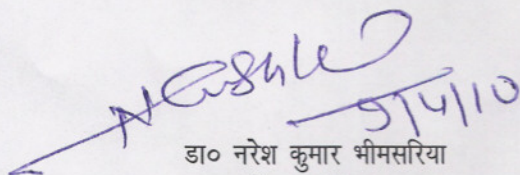 9/4/10
डा० नरेश कुमार भीमसरिया